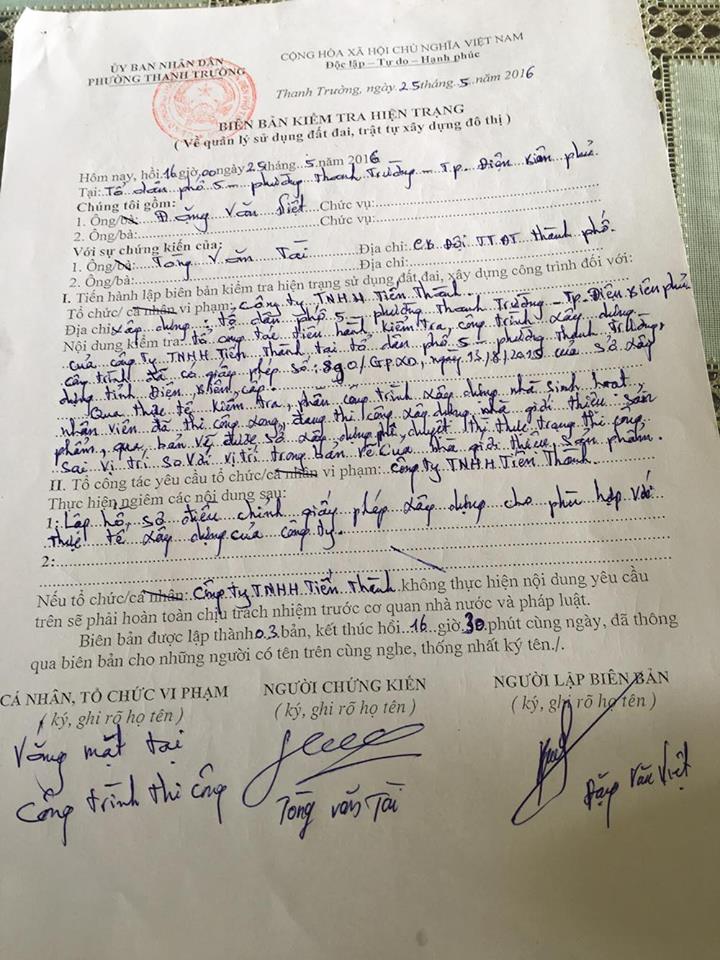 ỦY BAN NHÂN DÂN
PHƯỜNG THANH TRƯỜNG
CỘNG HÒA XÃ HỘI CHỦ NGHĨA VIỆT NAM
Độc lập – Tự do – Hạnh phúc
Thanh Trường, ngày 25 tháng 5 năm 2016
BIÊN BẢN KIỂM TRA HIỆN TRẠNG
( Về quản lý sử dụng đất đai, trật tự xây dựng đô thị )
Hôm nay, hồi 16 giờ, 00 ngày 25 tháng 5 năm 2016
Tại: Tổ dân phố 5 – phường Thanh Trường – Tp. Điện Biên phủ.
Chúng tôi gồm:
1. Ông/bà: Đặng Văn Việt Chức vụ:
2. Ông/bà: Chức vụ:
Với sự chứng kiến của:
1. Ông/bà: Tòng Văn Tài Địa chỉ: CB Đội TTĐT thành phố.
2. Ông/bà: Địa chỉ:
I. Tiến hành lập biên bản kiểm tra hiện trạng sử dụng đất đai, xây dựng công trình đối với:
Tổ chức/ cá nhân vi phạm: Công ty TNHH Tiến Thành.
Địa chỉ xây dựng: tổ dân phố 5 – phường Thanh Trường – Tp. Điện Biên phủ
Nội dung kiểm tra: tổ công tác tiến hành kiểm tra, công trình xây dựng
của công ty TNHH Tiến Thành, tại tổ dân phố 5 – phường Thanh Trường,
công trình đã có giấy phép số: 890/GPXD, ngày 13/8/2015 của sở xây
dựng tỉnh Điện Biên cấp.
Qua thực tế kiểm tra, phần công trình xây dựng nhà sinh hoạt,
nhân viên đã thi công xong, đang thi công xây dựng nhà giới thiệu sản
phẩm, qua bản vẽ được sở xây dựng phê duyệt thì thực trạng thi công
sai vị trí so với vị trí trong bản vẽ của nhà giới thiệu sản phẩm.
II. Tổ công tác yêu cầu tổ chức/cá nhân vi phạm: Công ty TNHH Tiến Thành.
Thực hiện ngiêm các nội dung sau:
1: Lập hồ sơ điều chỉnh giấy phép xây dựng cho phù hợp với
thực tế xây dựng của công ty.
2:
Nếu tổ chức/cá nhân: Công ty TNHH Tiến Thành không thực hiện nội dung yêu cầu
trên sẽ phải hoàn toàn chịu trách nhiệm trước cơ quan nhà nước và pháp luật.
Biên bản được lập thành 03 bản, kết thúc hồi 16 giờ 30 phút cùng ngày, đã thông
qua biên bản cho những người có tên trên cùng nghe, thống nhất ký tên./.
CÁ NHÂN, TỔ CHỨC VI PHẠM
( ký, ghi rõ họ tên )
NGƯỜI CHỨNG KIẾN
( ký, ghi rõ họ tên )
NGƯỜI LẬP BIÊN BẢN
(ký, ghi rõ họ tên )
Vắng mặt tại
công trình thi công
Tòng Văn Tài
Đặng Văn Việt